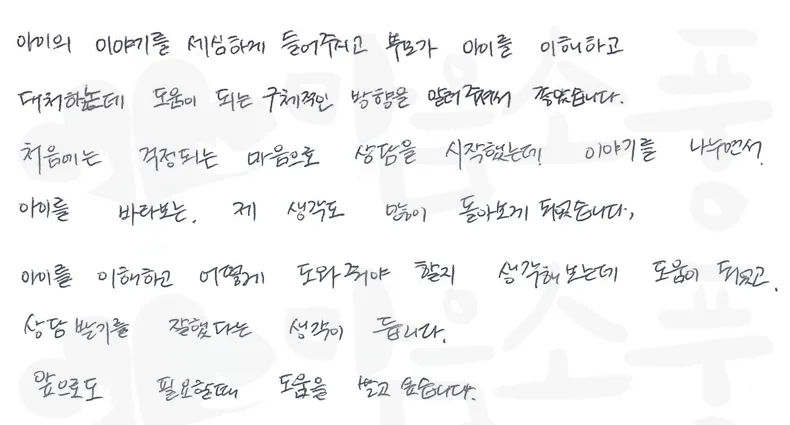 아이의 이야기를 세심하게 들어주시고 부모가 아이를 이해하고
대처하는데 도움이 되는 구체적인 방향을 알려주셔서 좋았습니다.
처음에는 걱정되는 마음으로 상담을 시작했는데 이야기를 나누면서.
아이를 바라보는. 제 생각도 많이 돌아보게 되었습니다,
아이를 이해하고 어떻게 도와줘야 할지 생각해보는데 도움이 되었고.
상담받기를 잘했다는 생각이 듭니다.
앞으로도 필요할때 도움을 받고 싶습니다.
마음소풍
마음소풍